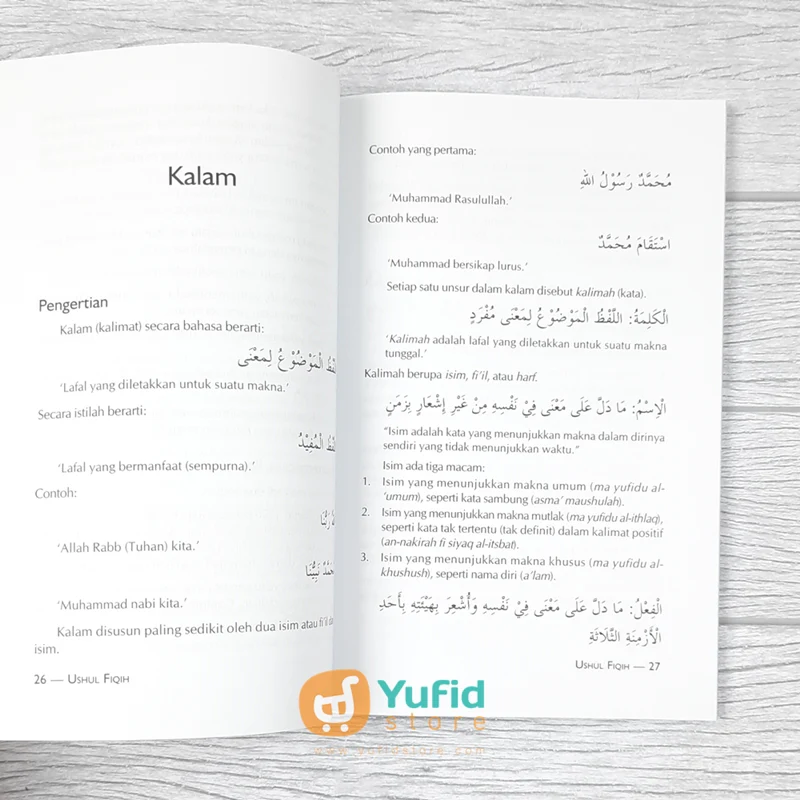 Kalam
Pengertian
Kalam (kalimat) secara bahasa berarti:
الْمَوْضُوْعُ لِمَعْنَى
'Lafal yang diletakkan untuk suatu makna.'
Secara istilah berarti:
الْمُفِيْدُ
'Lafal yang bermanfaat (sempurna).'
Contoh:
رَبُّنَا
'Allah Rabb (Tuhan) kita.'
نَبِيُّنَا
'Muhammad nabi kita.'
Kalam disusun paling sedikit oleh dua isim atau fi'il dan
isim.
26 — USHUL FIQIH
Contoh yang pertama:
مُحَمَّدٌ رَسُوْلُ اللهِ
'Muhammad Rasulullah.'
Contoh kedua:
اسْتَقَامَ مُحَمَّدٌ
'Muhammad bersikap lurus.'
Setiap satu unsur dalam kalam disebut kalimah (kata).
الْكَلِمَةُ: اللَّفْظُ الْمَوْضُوْعُ لِمَعْنَى مُفْرَدٍ
'Kalimah adalah lafal yang diletakkan untuk suatu makna
tunggal.'
Kalimah berupa isim, fi'il, atau harf.
الْاِسْمُ: مَا دَلَّ عَلَى مَعْنَى فِيْ نَفْسِهِ مِنْ غَيْرِ إِشْعَارٍ بِزَمَنٍ
"Isim adalah kata yang menunjukkan makna dalam dirinya
sendiri yang tidak menunjukkan waktu."
Isim ada tiga macam:
1. Isim yang menunjukkan makna umum (ma yufidu al-
'umum), seperti kata sambung (asma' maushulah).
2. Isim yang menunjukkan makna mutlak (ma yufidu al-ithlaq),
seperti kata tak tertentu (tak definit) dalam kalimat positif
(an-nakirah fi siyaq al-itsbat).
3. Isim yang menunjukkan makna khusus (ma yufidu al-
khushush), seperti nama diri (a'lam).
الْفِعْلُ: مَا دَلَّ عَلَى مَعْنَى فِيْ نَفْسِهِ وَأُشْعِرَ بِهَيْئَتِهِ بِأَحَدِ
الْأَزْمِنَةِ الثَّلَاثَةِ
USHUL FIQIH — 27
Yufid
store
www.yufidstore.com